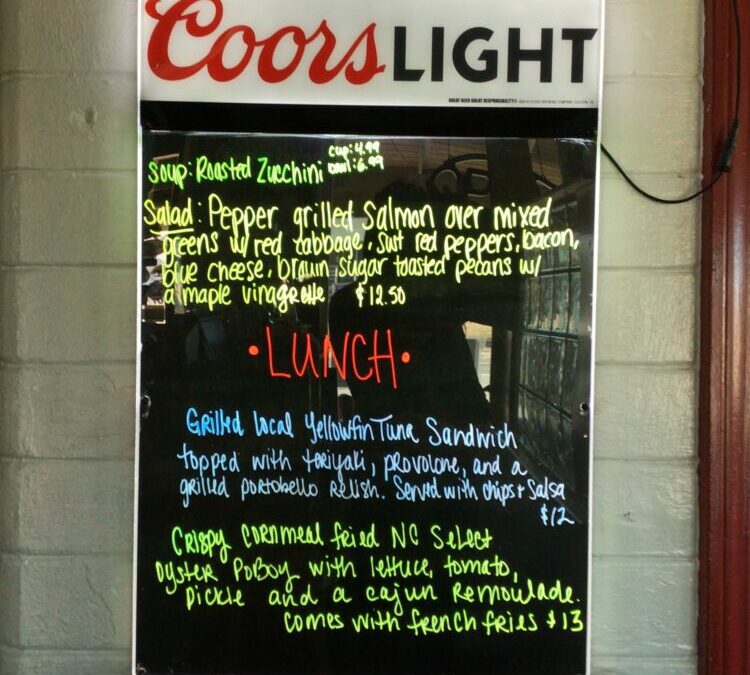 Coors LIGHT
GREAT BEER GREAT RESPONSIBILITY®
Soup: Roasted Zucchini cup: 4.99
bowl: 6.99
Salad: Pepper grilled Salmon over mixed
greens w/ red cabbage, sweet red peppers, bacon,
blue cheese, brown sugar toasted pecans w/
a maple vinagrette $12.50
• LUNCH •
Grilled local Yellowfin Tuna Sandwich
topped with teriyaki, provolone, and a
grilled portobello relish. Served with chips + Salsa
$12
Crispy Cornmeal fried NC Select
Oyster PoBoy with lettuce, tomato,
pickle and a cajun Remoulade.
comes with french fries $13